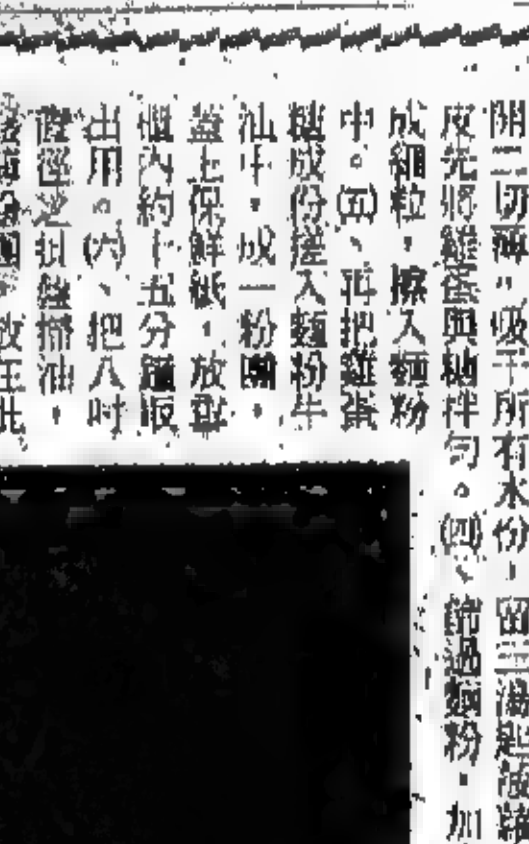 開二切薄。吸干所有水份，留三湯匙
皮先將雞蛋與糖拌勻。㈣、篩過麵粉，加
成細粒，擦入麵粉
中。㈤、再把雞蛋
糖成份搓入麵粉牛
油中，成一粉團，
蓋上保鮮紙，放
櫃內約十五分鐘取
出用。㈥、把八吋
直徑 掃油，
放在此